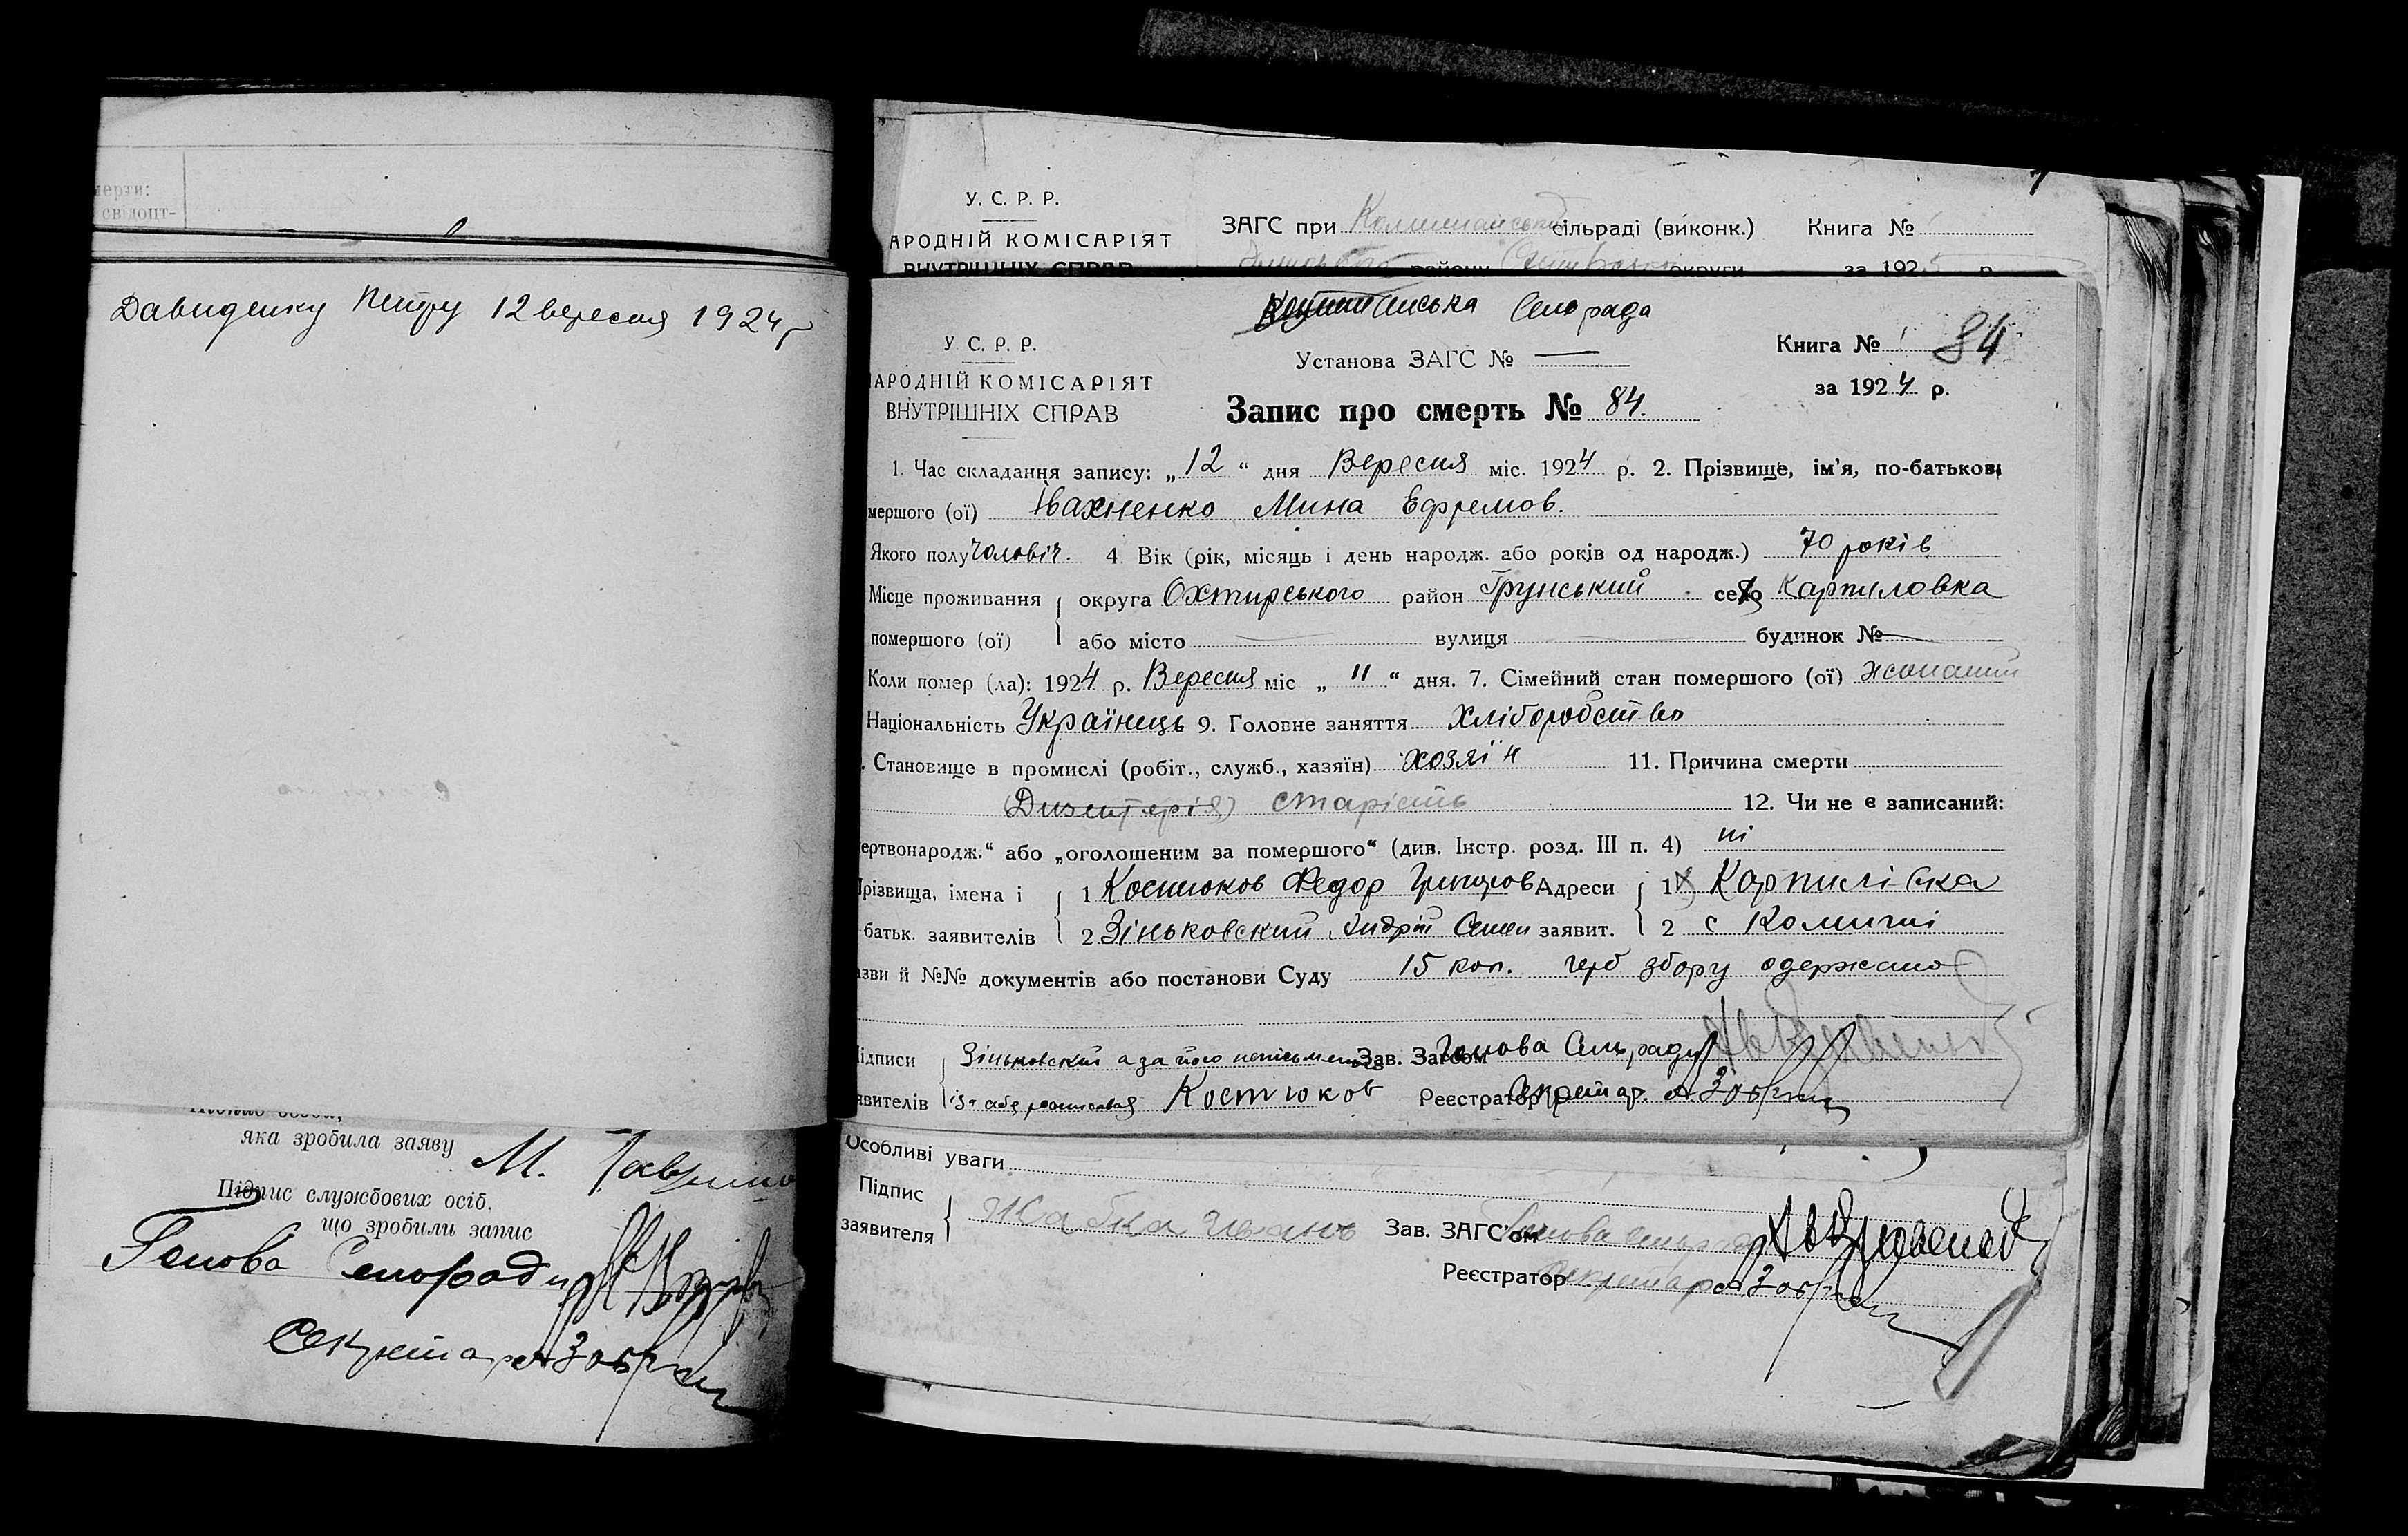 мерти:
свідоцт-
Давиденку Петру 12 вересня 1924 р
яка зробила заяву
М.
Підпис службових осіб,
що зробили запис
Голова Сельради
Секретар
У. С. Р. Р.
АРОДНІЙ КОМІСАРІЯТ
ВНУТРІШНІХ СПРАВ
ЗАГС при сільраді (виконк.) Книга №
району округи за 192 р
Комишанська Сельрада
У. С. Р. Р.
АРОДНІЙ КОМІСАРІЯТ
ВНУТРІШНІХ СПРАВ
Установа ЗАГС № —
Книга № 1 84
за 1924 р.
Запис про смерть № 84.
1. Час складання запису: „12“ дня Вересня міс. 1924 р. 2. Прізвище, ім'я, по-батькові
мершого (ої) Івахненко Мина Ефремов.
Якого полу чоловіч. 4. Вік (рік, місяць і день народж. або років од народж.) 70 років
Місце проживання округа Охтирського район Грунський село Карпиловка
помершого (ої) або місто — вулиця — будинок № —
Коли помер (ла): 1924 р. Вересня міс „11“ дня. 7. Сімейний стан помершого (ої) жонатий
Національність Українець 9. Головне заняття хліборобство
. Становище в промислі (робіт., служб., хазяїн) хозяїн 11. Причина смерти
(Дизентерія) старість 12. Чи не є записаний:
ертвонародж.“ або „оголошеним за помершого“ (див. Інстр. розд. III п. 4) ні
різвища, імена і 1 Костюков Федор Григоров Адреси 1 х Карпилівка
батьк. заявителів 2 Зіньковский Андрій Семен заявит. 2 с Комиші
азви й №№ документів або постанови Суду 15 коп. герб збору одержано
ідписи Зіньковский а за його неписьменого Зав. Загсом Голова Сельради
явителів і за себе росписався Костюков Реєстратор Секретар.
Особливі уваги
Підпис
заявителя Жабка Иванъ Зав. ЗАГС'ом Голова сельради
Реєстратор Секретар